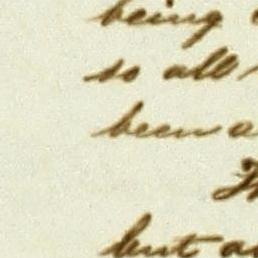 being
so all
been a
but